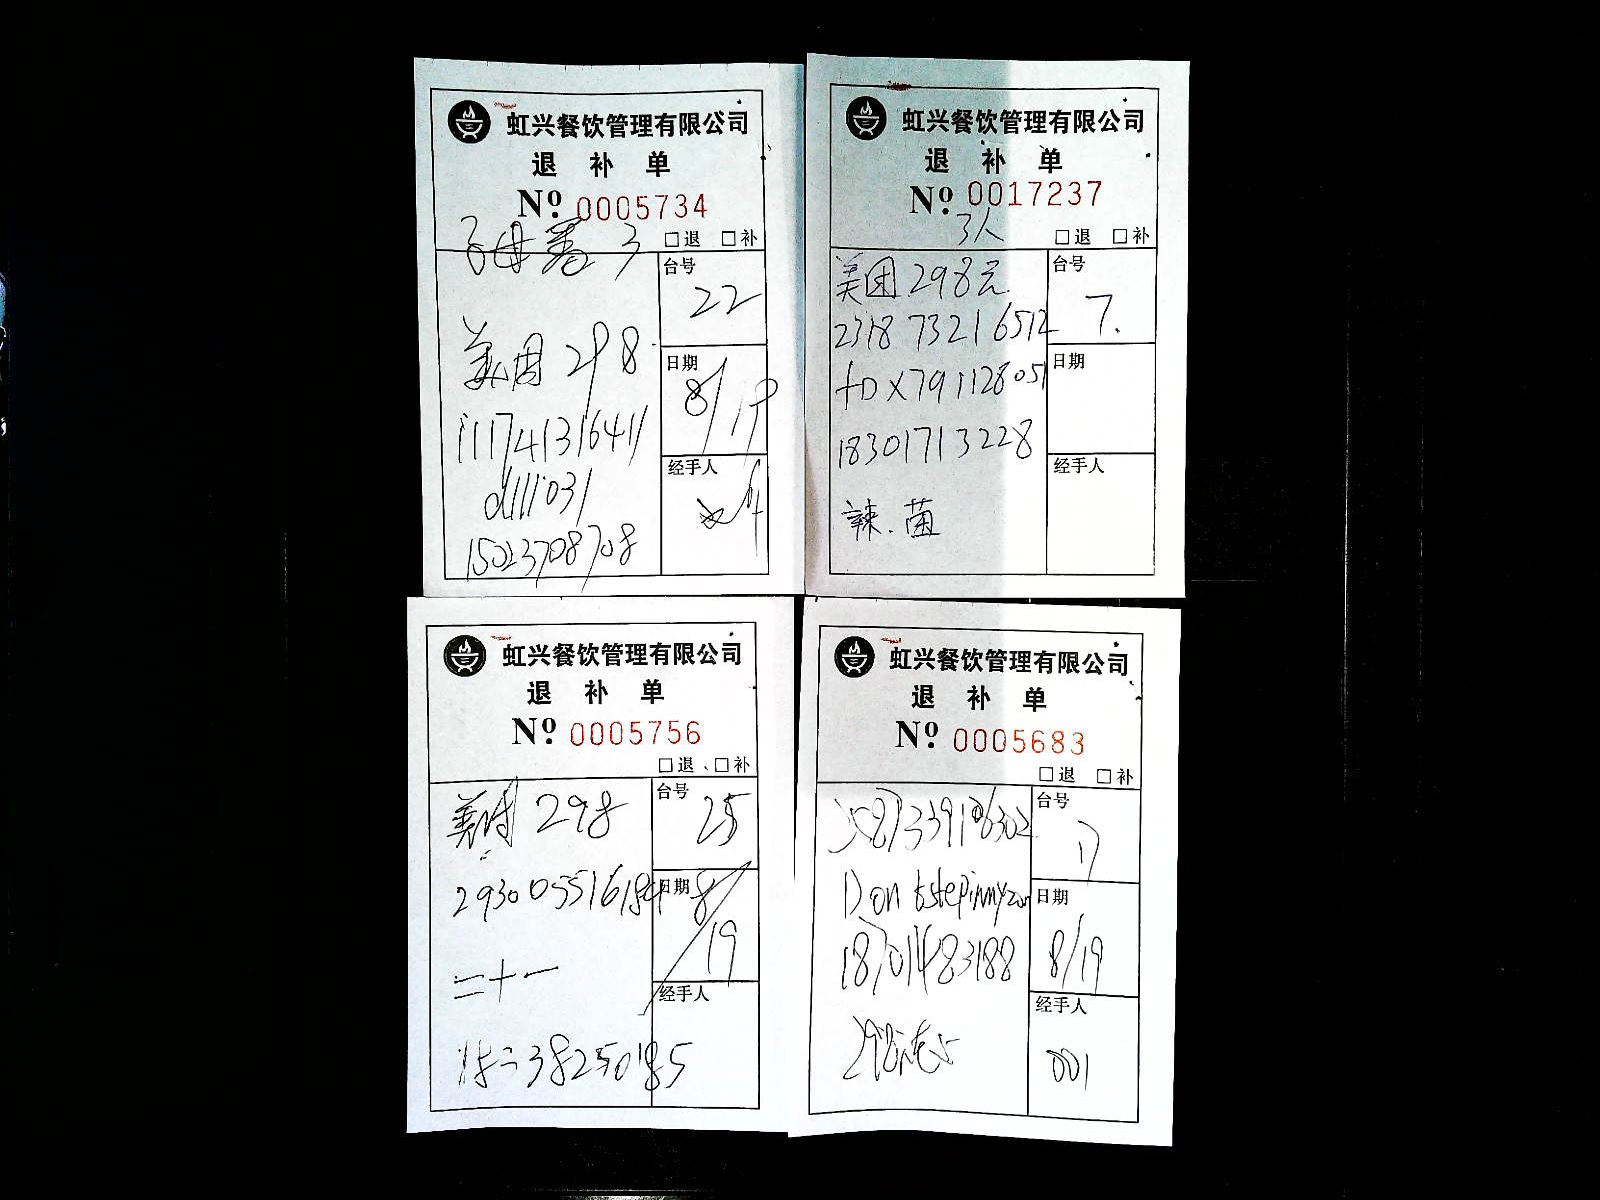 虹兴餐饮管理有限公司
退 补 单
Nº. 0005734
□退 □补
台号
22
美团 298
日期
8/19
111741316411
d111031
经手人
15023708708
虹兴餐饮管理有限公司
退 补 单
Nº. 0017237
3人
□退 □补
美团 298元
台号
7.
2318 7321 6512
日期
fDX791128051
18301713228
经手人
辣.菌
虹兴餐饮管理有限公司
退 补 单
Nº. 0005756
□退、□补
美团 298
台号
25
日期
8/19
二十一
经手人
虹兴餐饮管理有限公司
退 补 单
Nº. 0005683
□退 □补
台号
17
日期
18701483188
8/19
经手人
001